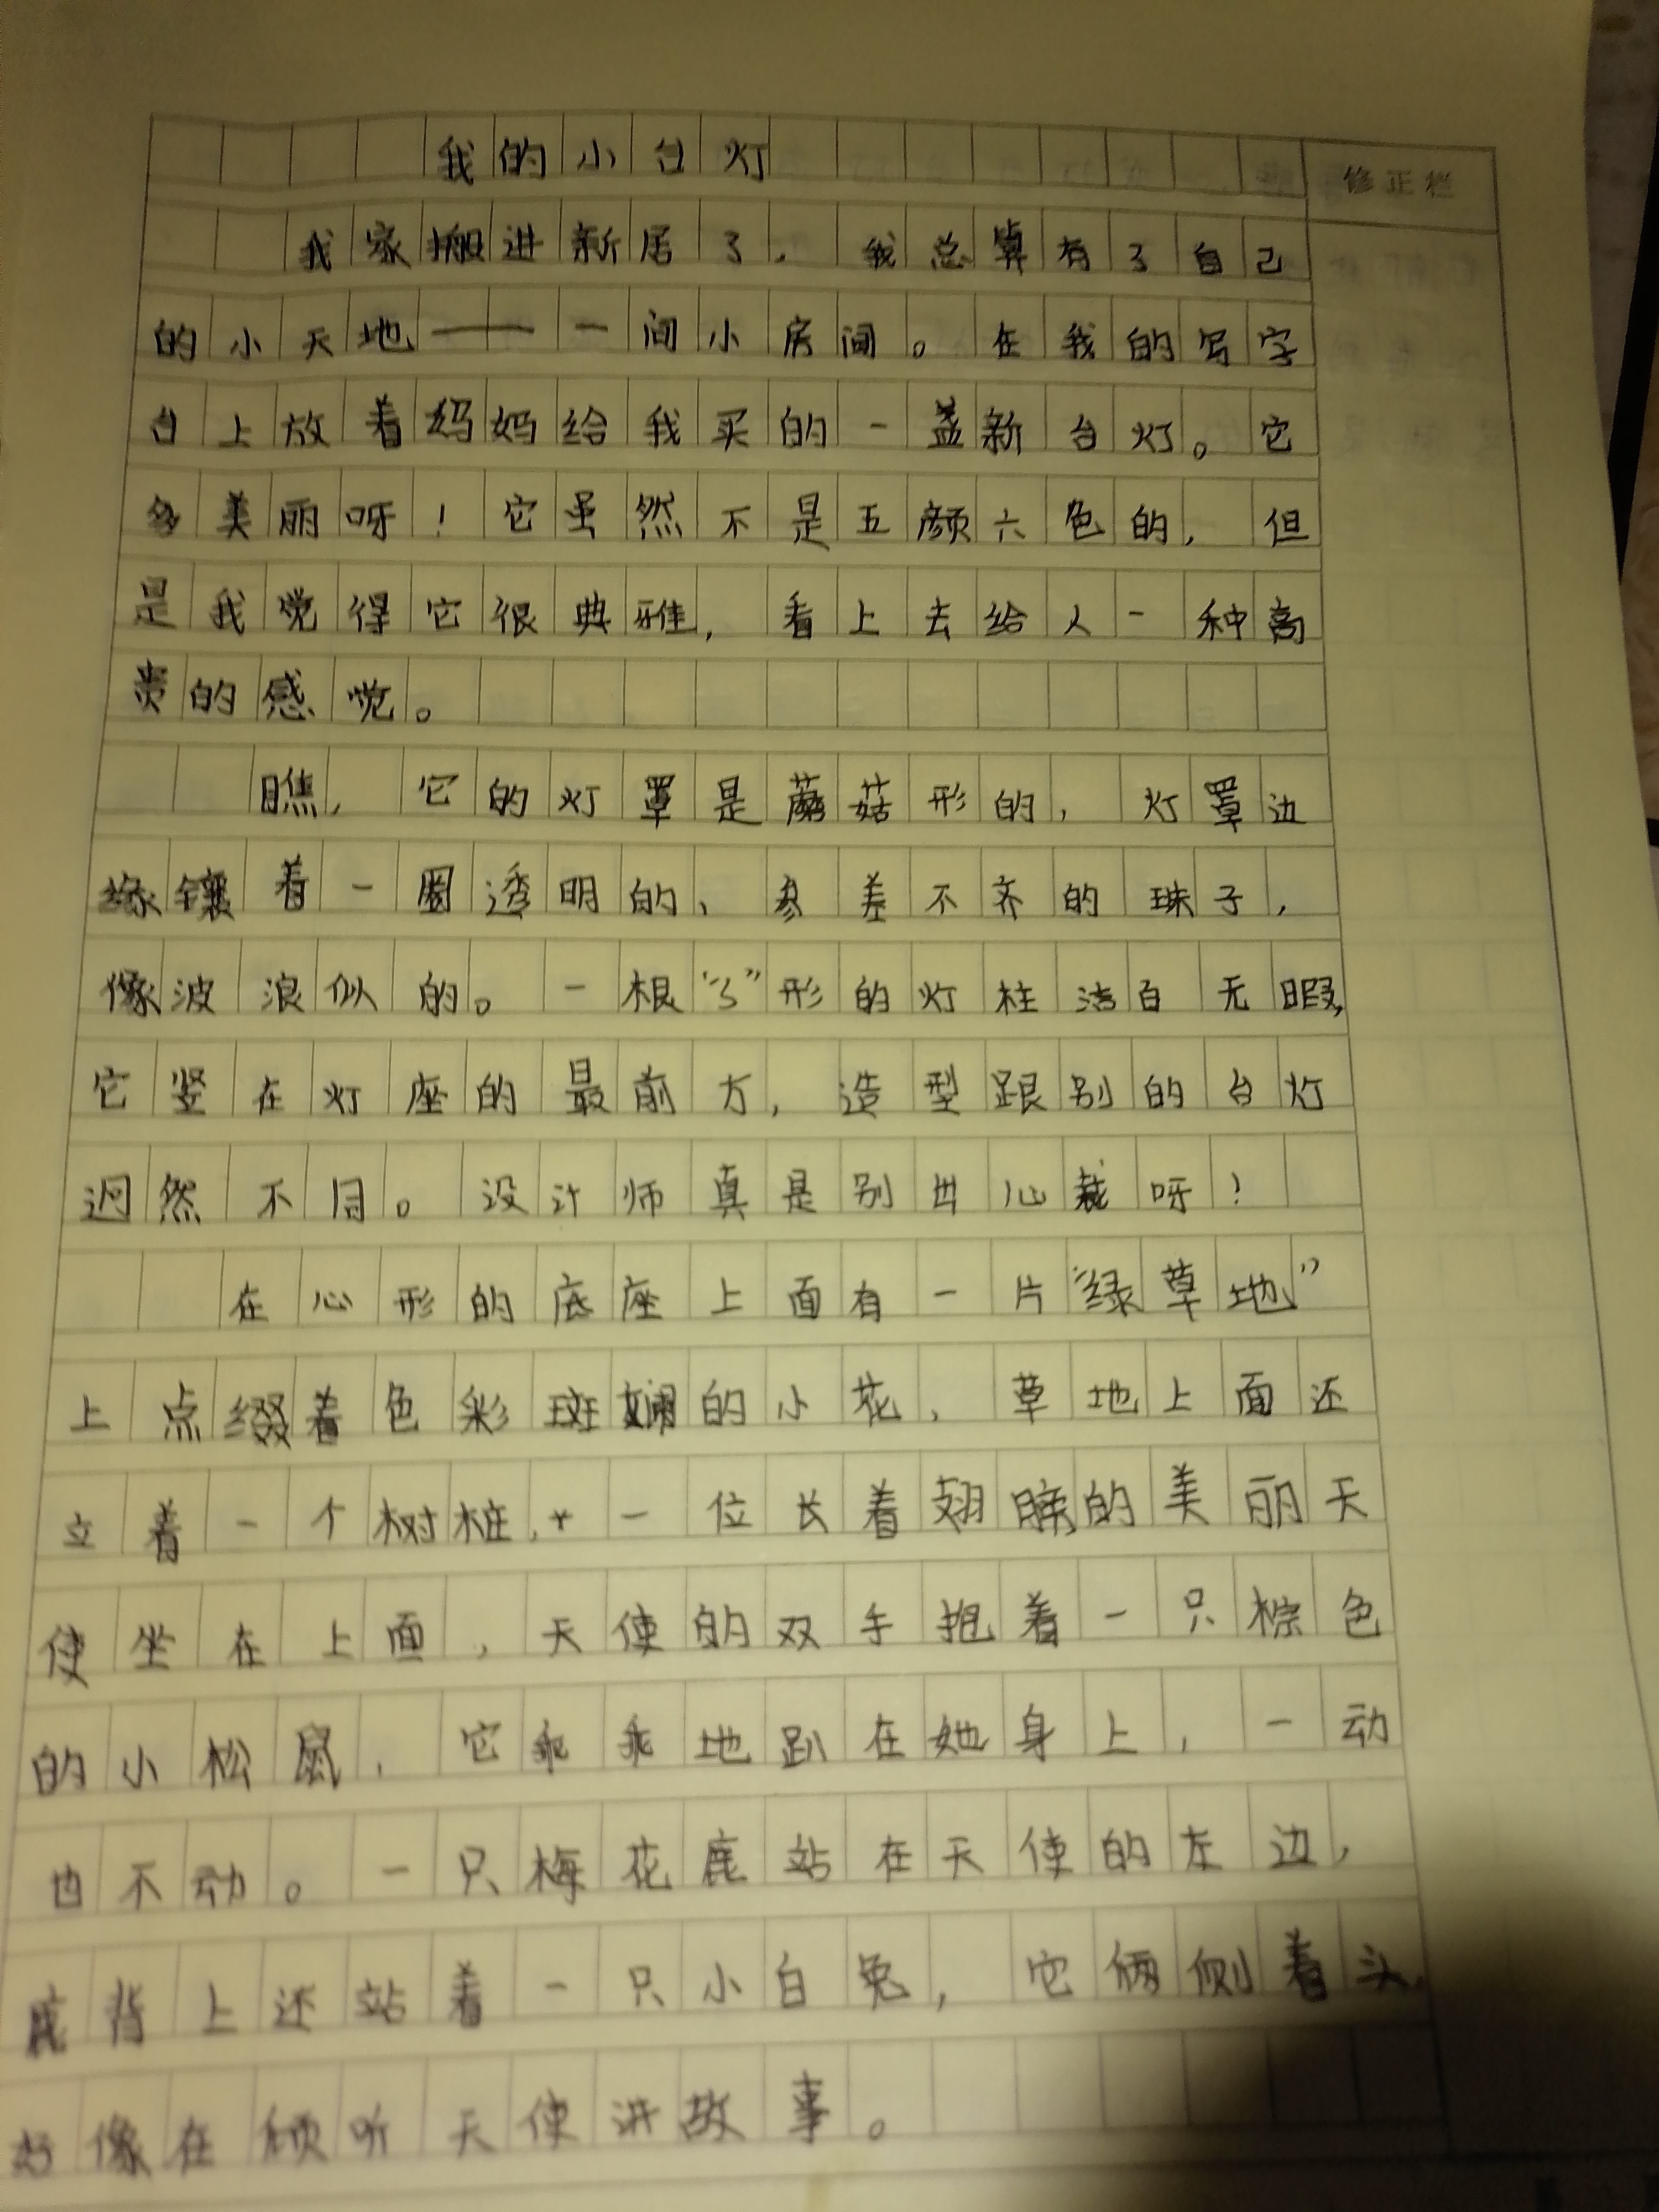 我的小台灯
修正栏
我家搬进新居了，我总算有了自己
的小天地——一间小房间。在我的写字
台上放着妈妈给我买的一盏新台灯。它
多美丽呀！它虽然不是五颜六色的，但
是我觉得它很典雅，看上去给人一种高
贵的感觉。
瞧，它的灯罩是蘑菇形的，灯罩边
缘镶着一圈透明的、参差不齐的珠子，
像波浪似的。一根“S”形的灯柱洁白无暇，
它竖在灯座的最前方，造型跟别的台灯
迥然不同。设计师真是别出心裁呀！
在心形的底座上面有一片“绿草地”
上点缀着色彩斑斓的小花，草地上面还
立着一个树桩，一位长着翅膀的美丽天
使坐在上面，天使的双手抱着一只棕色
的小松鼠，它乖乖地趴在她身上，一动
也不动。一只梅花鹿站在天使的左边，
鹿背上还站着一只小白兔，它俩侧着头，
好像在倾听天使讲故事。